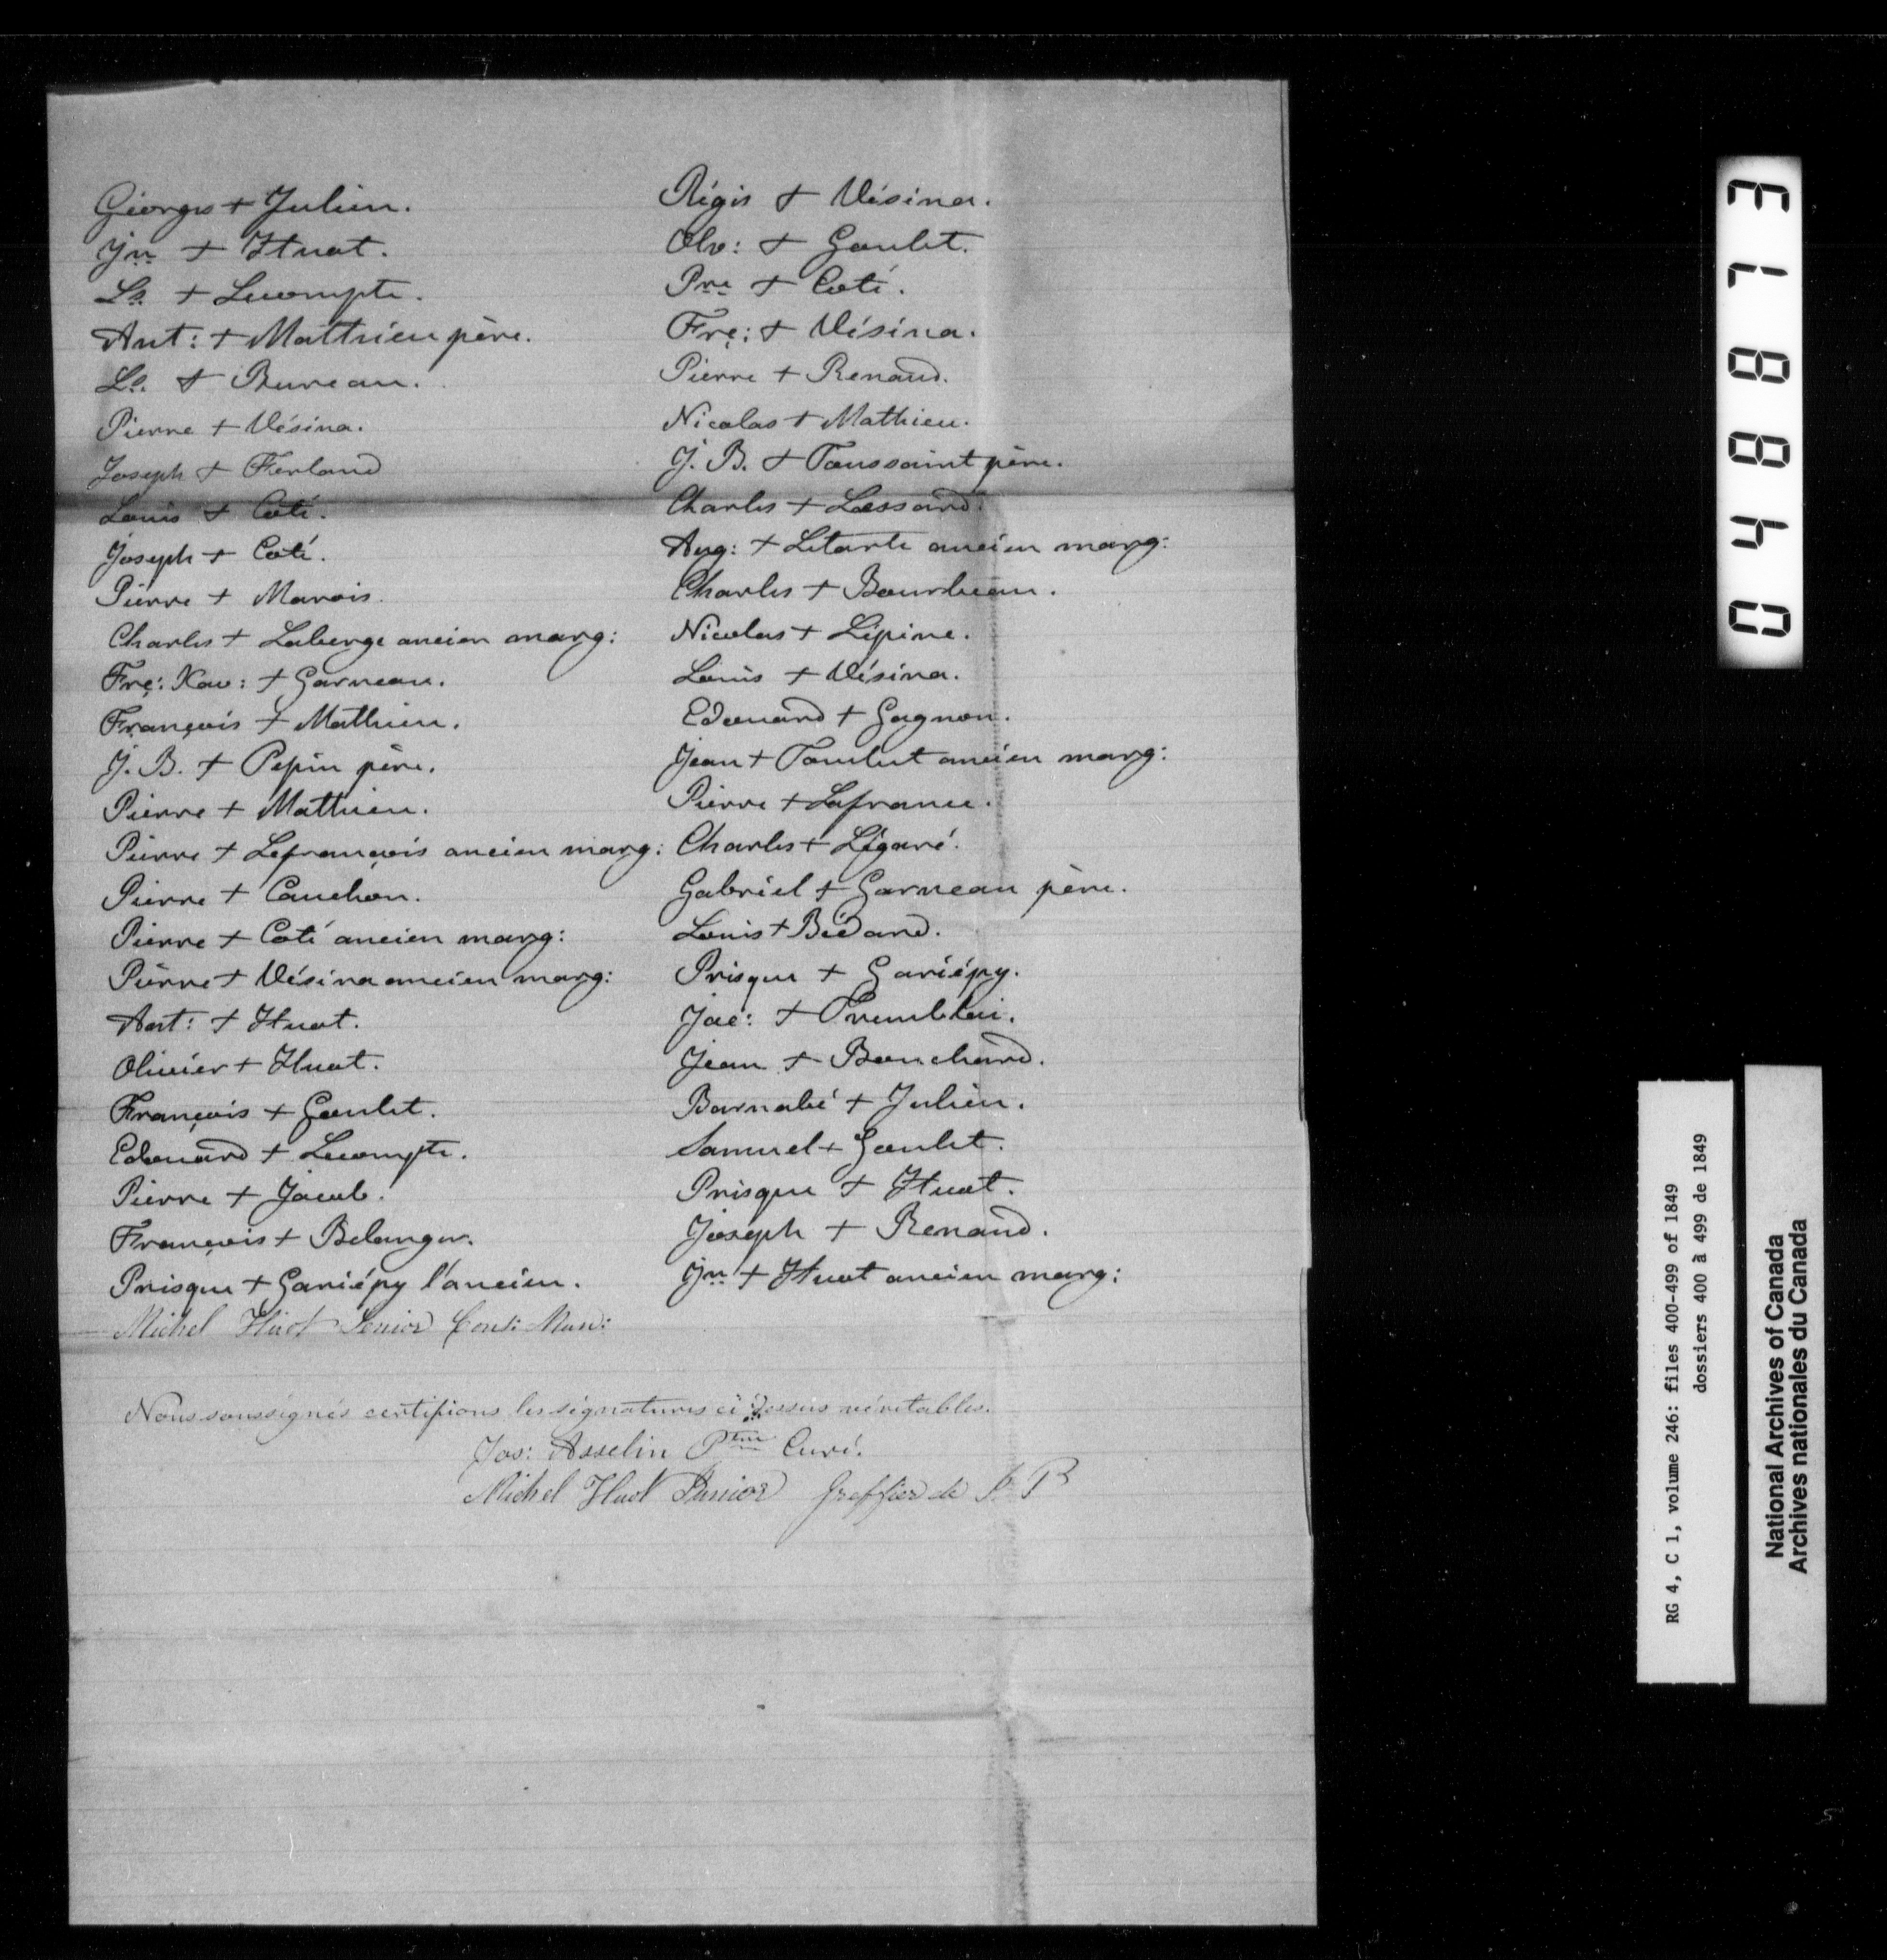 Georges + Julien.
Jn + Huot.
Ls + Lecompte.
Ant: + Matthieu père.
Ls. + Bureau.
Pierre + Vésina.
Joseph + Ferland
Louis + Coté.
Joseph + Coté.
Pierre + Marois.
Charles + Laberge ancien marg:
Frç: Xav: + Garneau.
François + Mathieu.
J. B. + Pepin père.
Pierre + Matthieu.
Pierre + Lefrançois ancien marg:
Pierre + Cauchon.
Pierre + Coté ancien marg:
Pierre + Vésina ancien marg:
Ant: + Huot.
Olivier + Huot.
François + Goulet.
Edouard + Lecompte.
Pierre + Jacob.
François + Belanger.
Prisque + Gariépy l'ancien.
Michel Huot Senior Cons: Mun:
Régis + Vésina.
Olv: + Goulet.
Pre + Coté.
Frç: + Vésina.
Pierre + Renaud.
Nicolas + Mathieu.
J. B. + Toussaint père.
Charles + Lessard.
Aug: + Letarte ancien marg:
Charles + Bourbeau.
Nicolas + Lépine.
Louis + Vésina.
Edouard + Gagnon.
Jean + Toulut ancien marg:
Pierre + Lafrance.
Charles + Légaré.
Gabriel + Garneau père.
Louis + Bédard.
Prisque + Gariépy.
Jac: + Tremblai.
Jean + Bouchard.
Barnabé + Julien.
Samuel + Goulet.
Prisque + Huot.
Joseph + Renaud.
Jn + Huot ancien marg:
Nous soussignés certifions les signatures ci dessus véritables.
Jos: Asselin Ptre Curé.
Michel Huot Junior Greffier de P
048873
RG 4, C 1, volume 246: files 400-499 of 1849
dossiers 400 à 499 de 1849
National Archives of Canada
Archives nationales du Canada